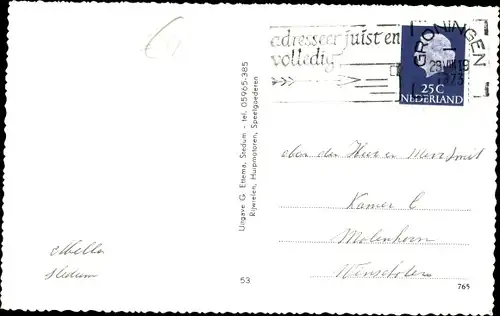 adresseer juist en
volledig
GRONINGEN
1973
25C
NEDERLAND
Uitgave G. Ettema, Stedum - tel. 05965-385
Rijwielen, Hulpmotoren, Speelgoederen
aan den Heer en Mevr Smit
Kamer C
Molenhorn
Winschoten
Stedum
53
765